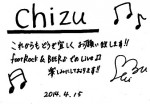 Chizu
これからもどうぞ宜しくお願い致します!!
footRock & BEERs での Live♫
楽しみにしております!!
2014.4.15